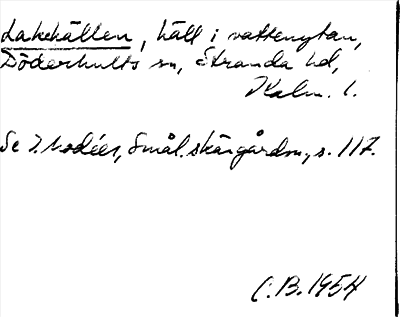 Lakehällen, häll i vattenytan,
Döderhults sn, Stranda hd,
Kalm. l.
Se I. Modéer, Smål. skärgårdsn., s. 117.
C.B. 1954